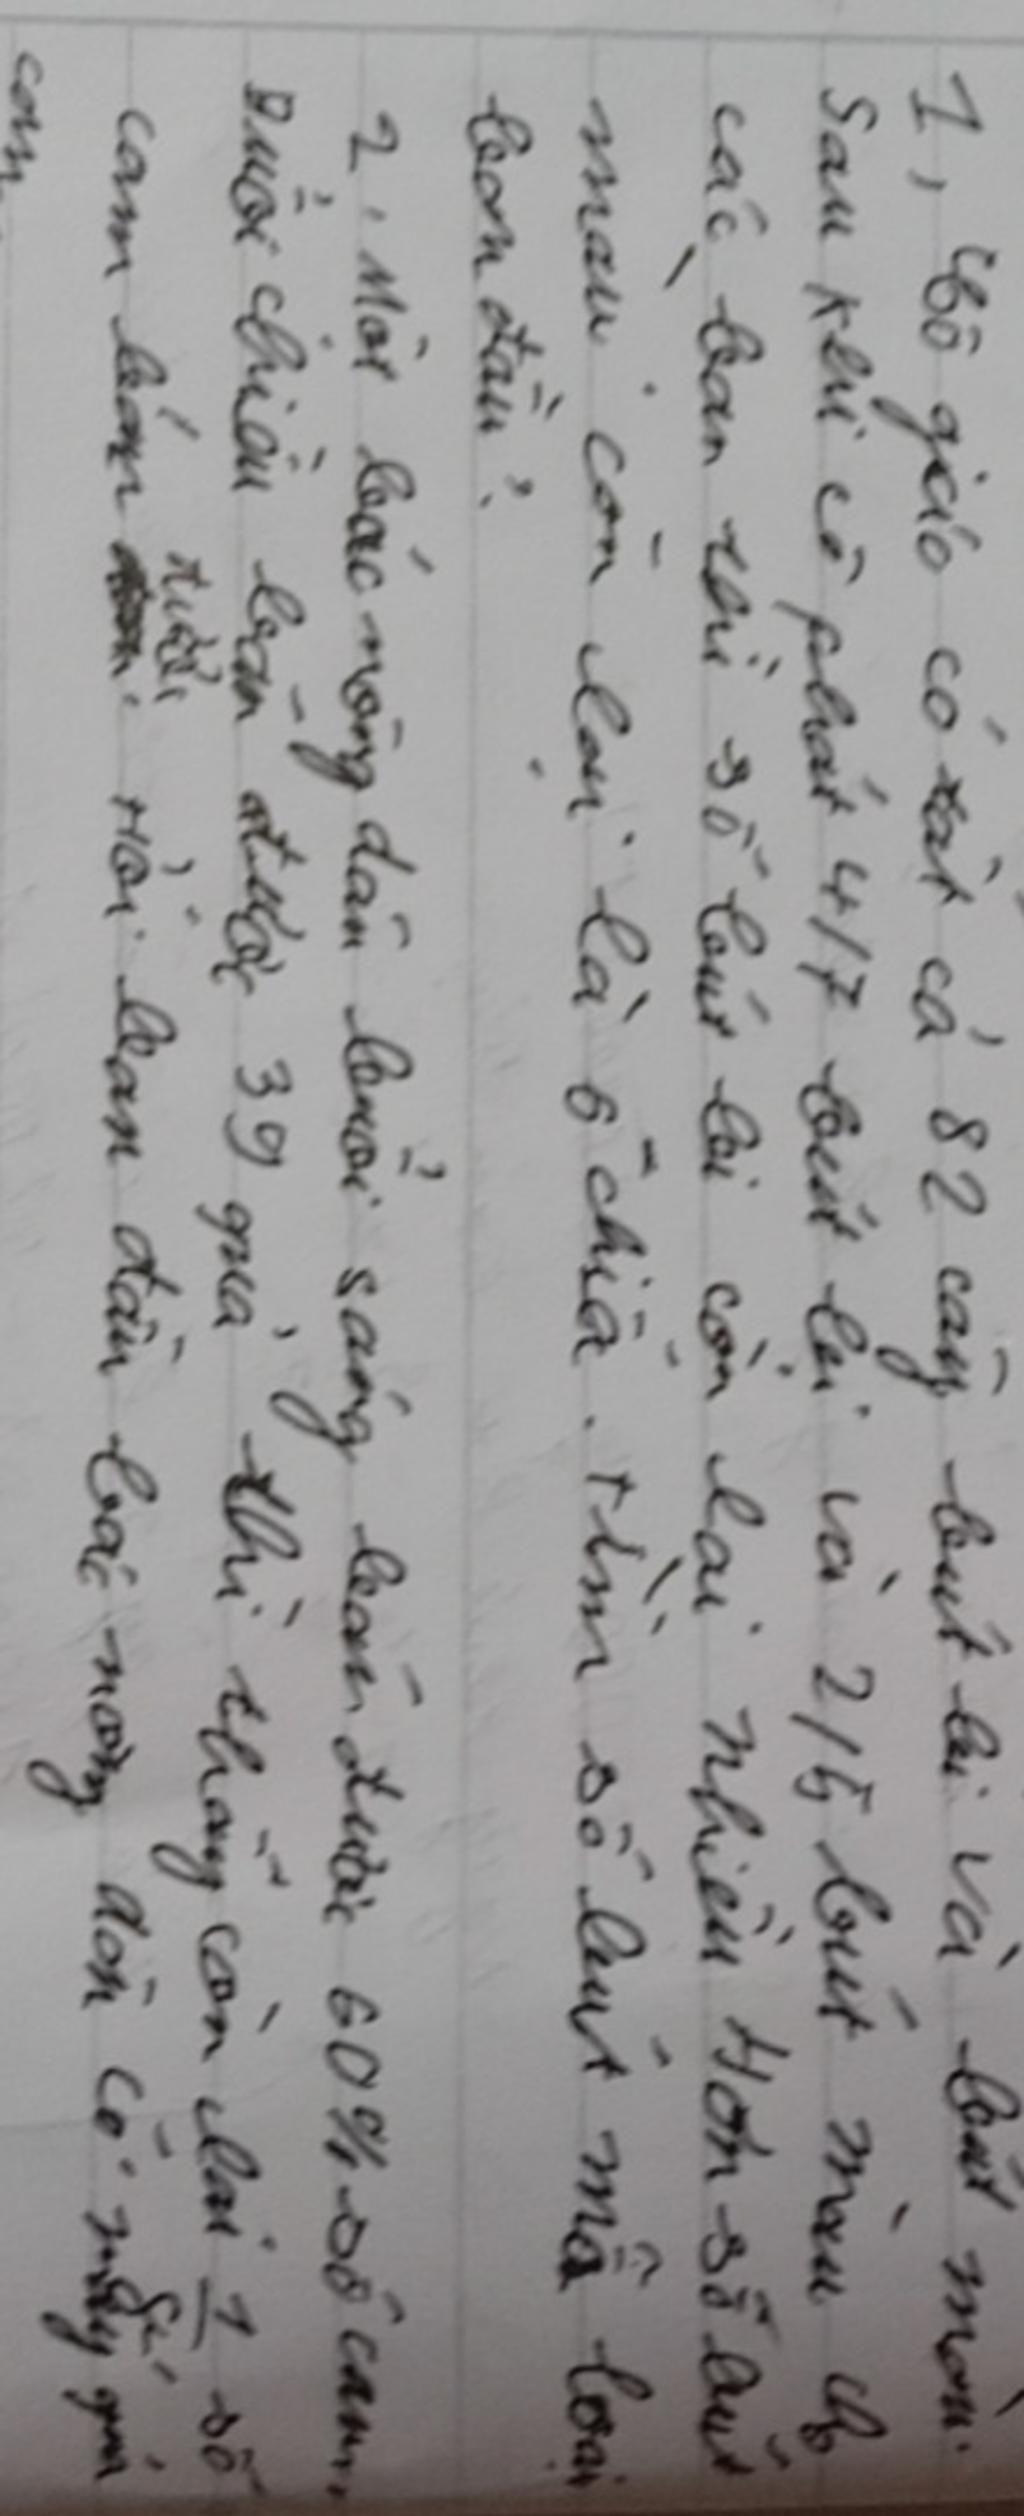 1, Cô giáo có tất cả 82 cây bút bi và bút màu.
Sau khi cô phát 4/7 bút bi và 2/5 bút màu cho
các bạn thì số bút bi còn lại nhiều hơn số bút
màu còn lại là 6 chiếc. Tìm số bút mỗi loại
ban đầu?
2. Một bác nông dân buổi sáng bán được 60% số cam,
Buổi chiều bán được 39 quả thì thấy còn lại 1 số
cam bán buổi. Hỏi ban đầu bác nông dân có mấy quả
cam